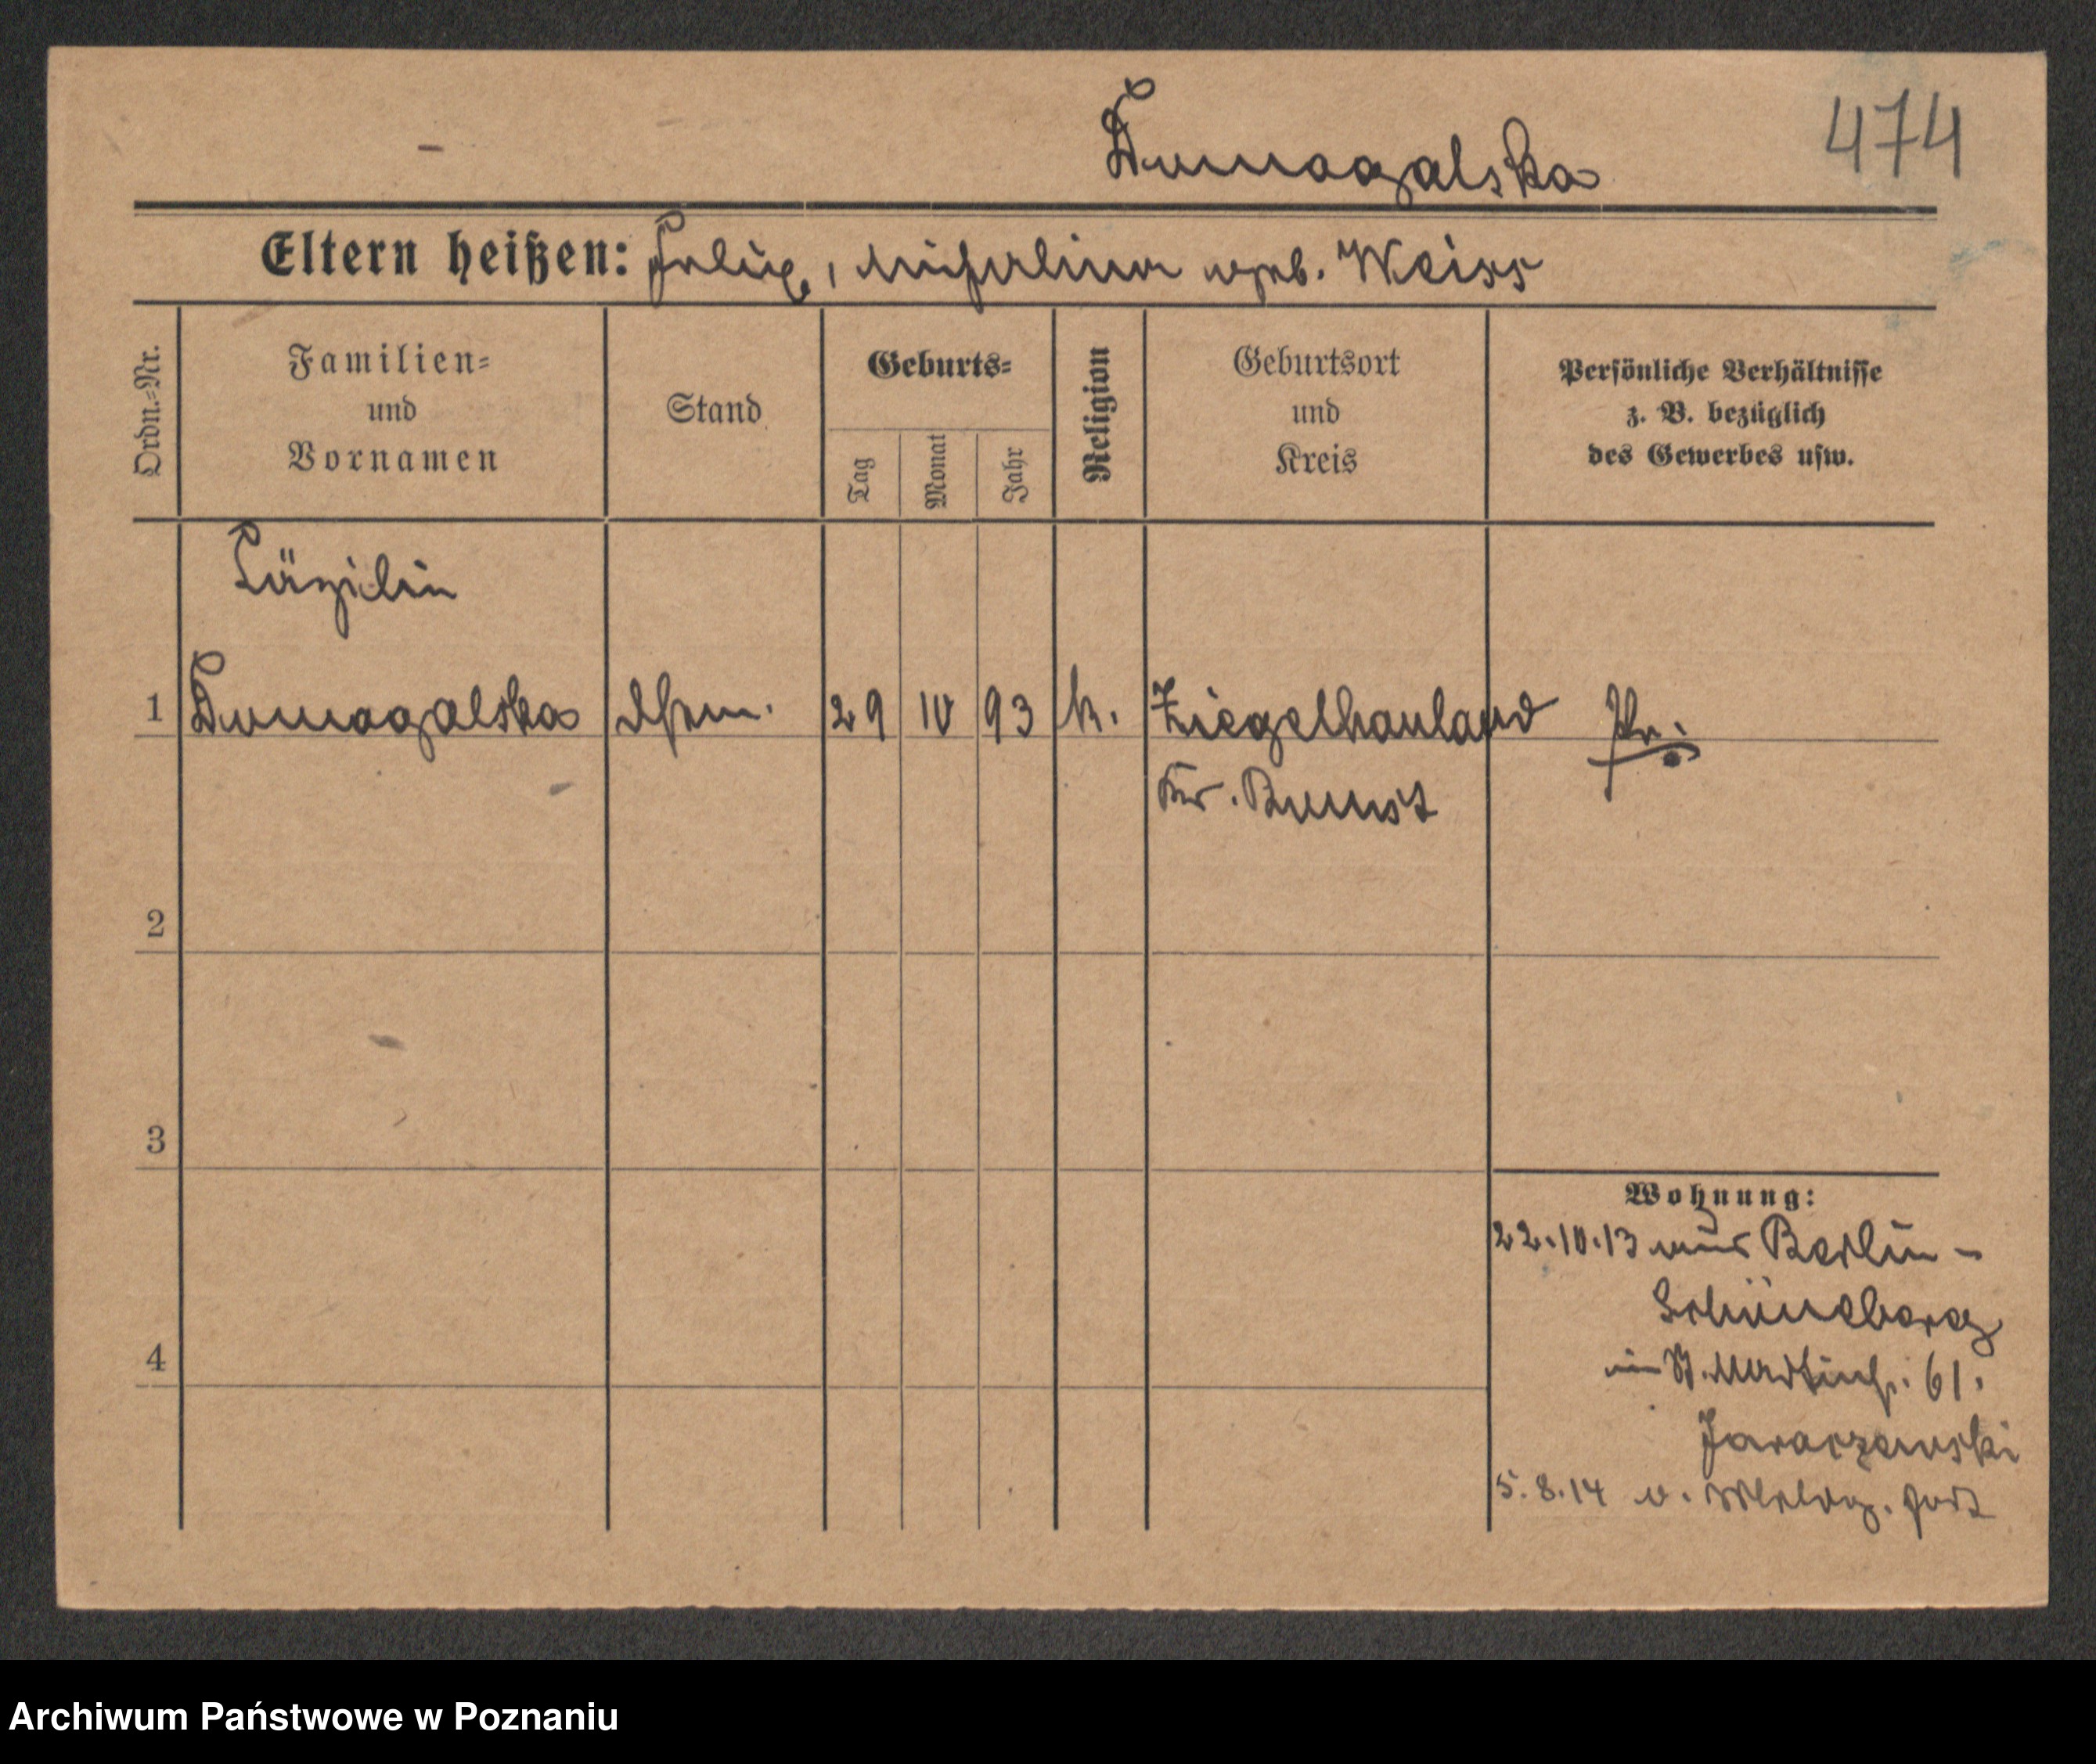 Domagalska
474
Eltern heißen: Felix, Michalina geb. Weiss
Ordn.-Nr.
Familien-
und
Vornamen
Stand
Geburts-
Tag
Monat
Jahr
Religion
Geburtsort
und
Kreis
Persönliche Verhältnisse
z. B. bezüglich
des Gewerbes usw.
Cäzilie
1 Domagalska 29 10 93 k. Ziegelhauland Pr.
Kr. Bomst
2
3
4
Wohnung:
22.10.13 aus Berlin-
Schöneberg
St. Martinstr. 61.
Jaraczewski
5.8.14 fort
Archiwum Państwowe w Poznaniu